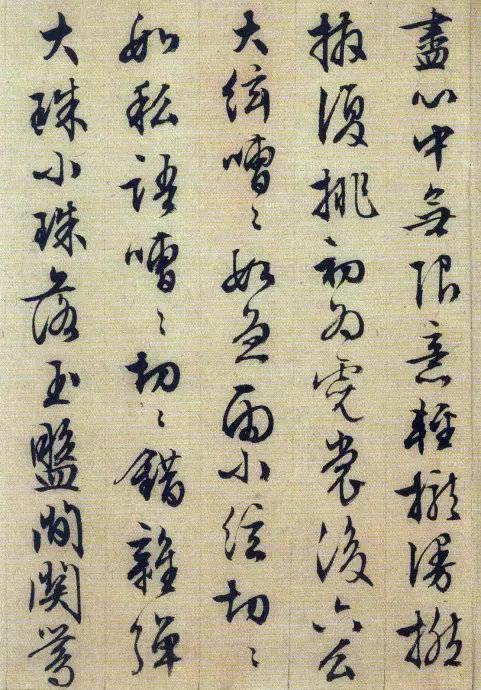 盡心中無限意輕攏漫撚
撥復挑初為霓裳後六么
大絃嘈〻如急雨小絃切〻
如私語嘈〻切〻錯雜彈
大珠小珠落玉盤間関鶯